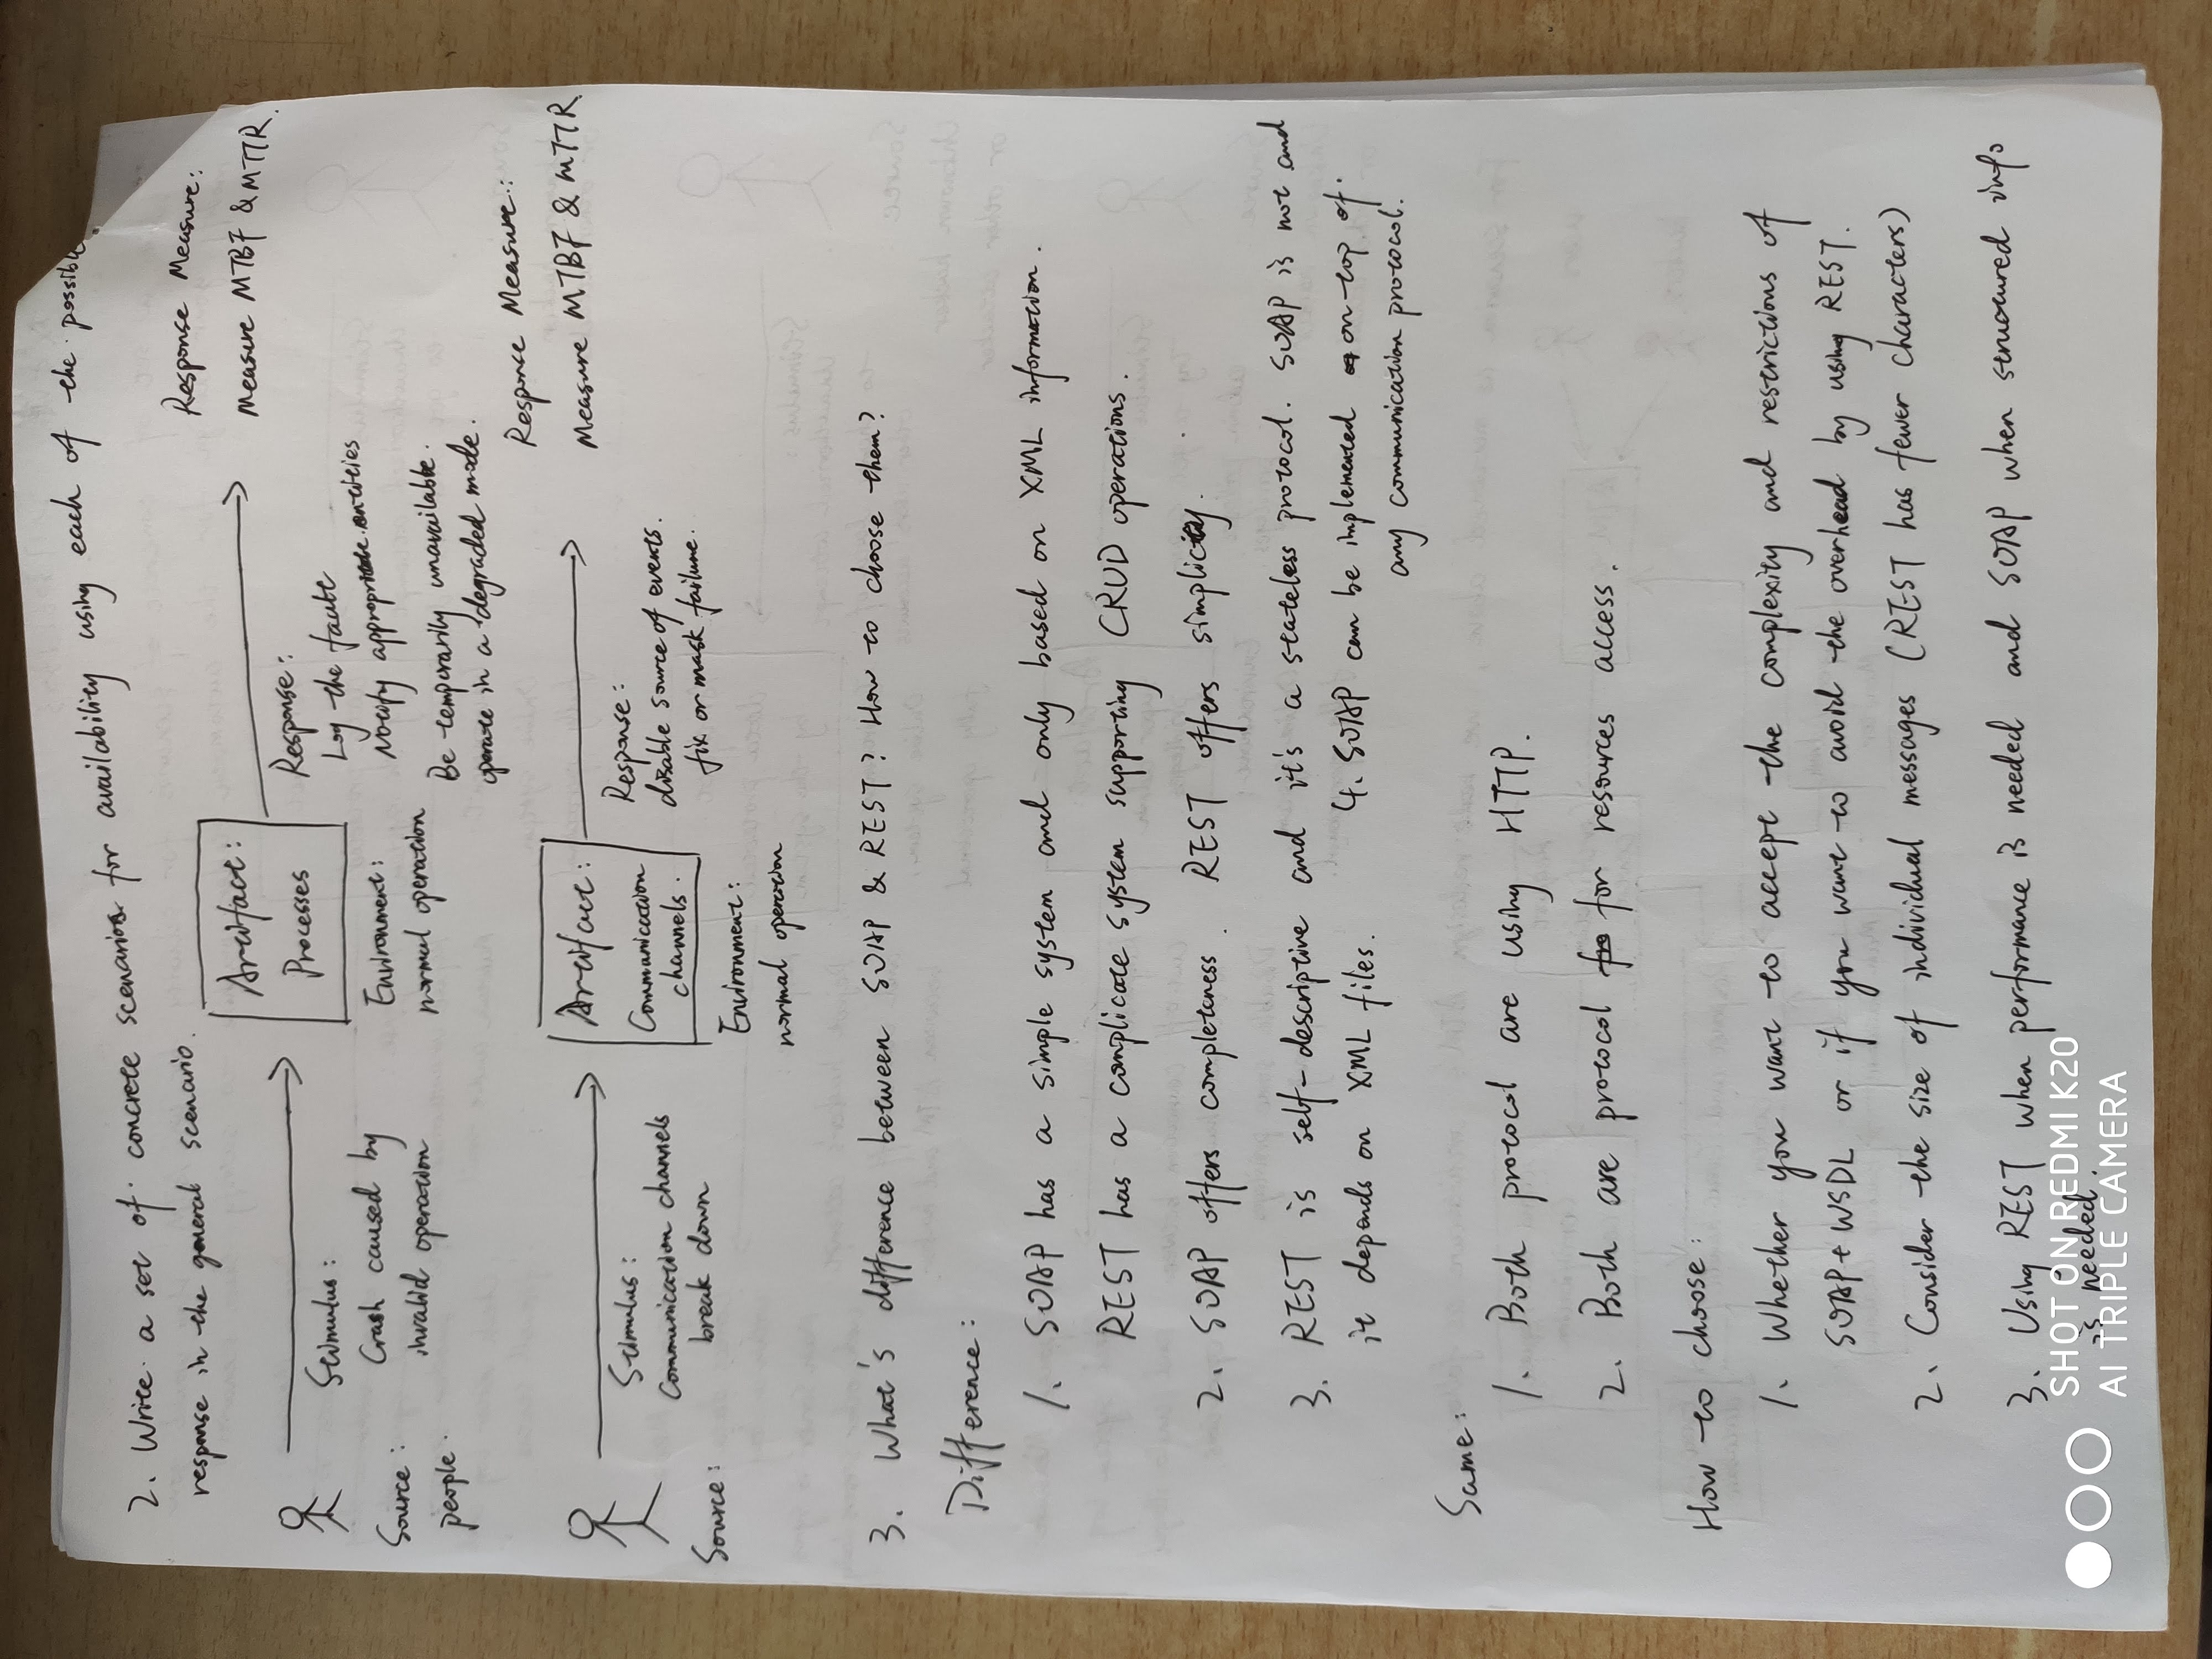 2. Write a set of concrete scenarios for availability using each of the possible
response in the general scenario.
Source:
people.
Stimulus:
Crash caused by
invalid operation
Artifact:
Processes
Environment:
normal operation
Response:
Log the fault
Notify appropriate entities
Be temporarily unavailable.
operate in a degraded mode.
Response Measure:
Measure MTBF & MTTR.
Source:
Stimulus:
Communication channels
break down
Artifact:
Communication
channels.
Environment:
normal operation
Response:
disable source of events.
fix or mask failure.
Response Measure:
Measure MTBF & MTTR.
3. What's difference between SOAP & REST? How to choose them?
Difference:
1. SOAP has a simple system and only based on XML information.
REST has a complicate system supporting CRUD operations.
2. SOAP offers completeness. REST offers simplicity.
3. REST is self-descriptive and it's a stateless protocol. SOAP is not and
it depends on XML files.
4. SOAP can be implemented on top of
any communication protocol.
Same:
1. Both protocol are using HTTP.
2. Both are protocol for resources access.
How to choose:
1. Whether you want to accept the complexity and restrictions of
SOAP+WSDL or if you want to avoid the overhead by using REST.
2. Consider the size of individual messages (REST has fewer characters)
3. Using REST when performance is needed and SOAP when structured info
is needed.
SHOT ON REDMI K20
AI TRIPLE CAMERA